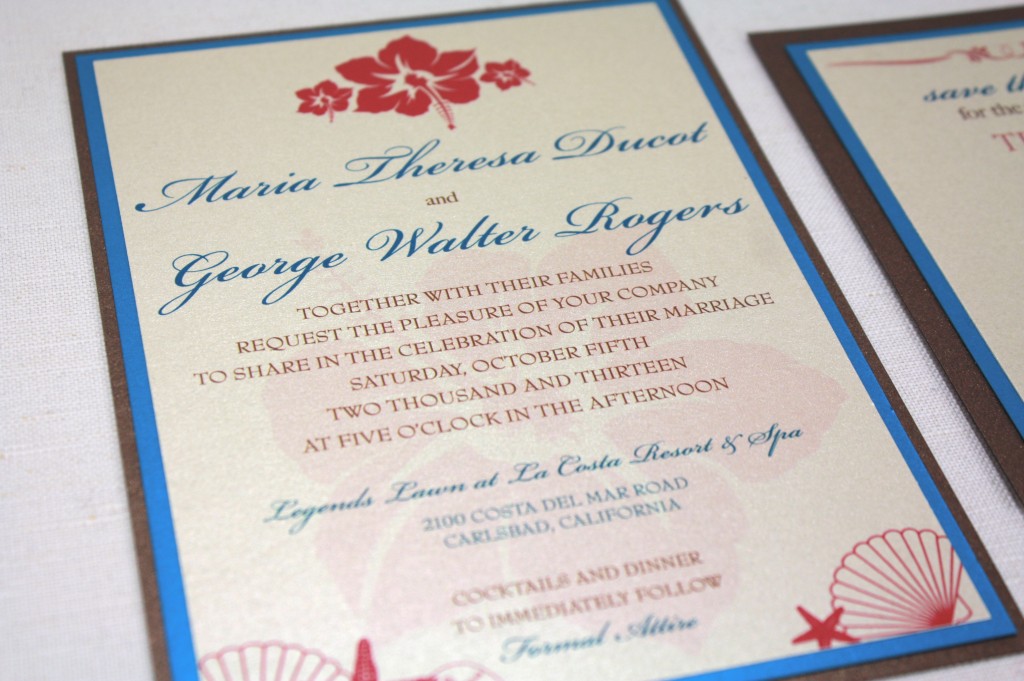 Maria Theresa Ducot
and
George Walter Rogers
TOGETHER WITH THEIR FAMILIES
REQUEST THE PLEASURE OF YOUR COMPANY
TO SHARE IN THE CELEBRATION OF THEIR MARRIAGE
SATURDAY, OCTOBER FIFTH
TWO THOUSAND AND THIRTEEN
AT FIVE O'CLOCK IN THE AFTERNOON
Legends Lawn at La Costa Resort & Spa
2100 COSTA DEL MAR ROAD
CARLSBAD, CALIFORNIA
COCKTAILS AND DINNER
TO IMMEDIATELY FOLLOW
Formal Attire
save
for the